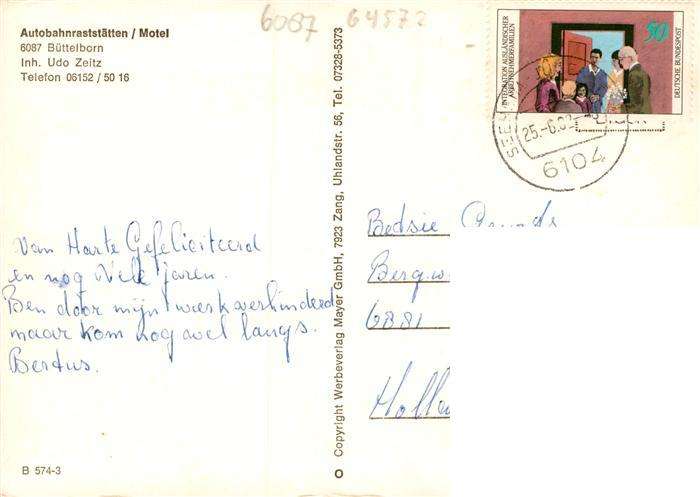 Autobahnraststätten / Motel
6087 Büttelborn
Inh. Udo Zeitz
Telefon 06152 / 50 16
6087 64572
INTEGRATION AUSLÄNDISCHER
ARBEITNEHMERFAMILIEN
50
DEUTSCHE BUNDESPOST
25.-6.82
6104
Van Harte Gefeliciteerd
en nog Vele Jaren.
Ben door mijn werk verhinderd
maar kom nog wel langs.
Bertus.
Copyright Werbeverlag Mayer GmbH, 7923 Zang, Uhlandstr. 56, Tel. 07328-5373
Betsie
Berg.w
6881
Holla
B 574-3